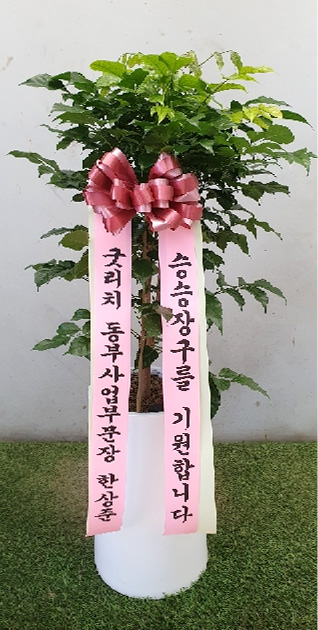 굿리치 동부사업부문장 한상준
승승장구를 기원합니다